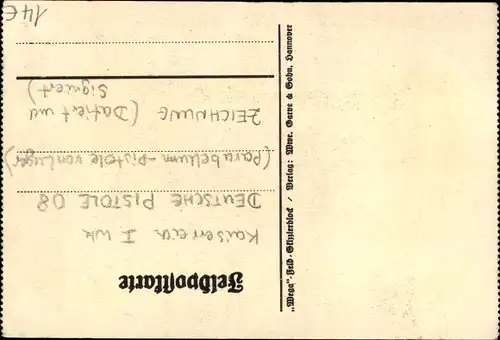 Feldpostkarte
Kaiserreich I WK
DEUTSCHE PISTOLE 08
(Parabellum-Pistole von Luger)
ZEICHNUNG (Datiert und
Signiert)
14€
„Wega“-Feld-Skizzierblock / Verlag: Wwe. Garve & Sohn, Hannover